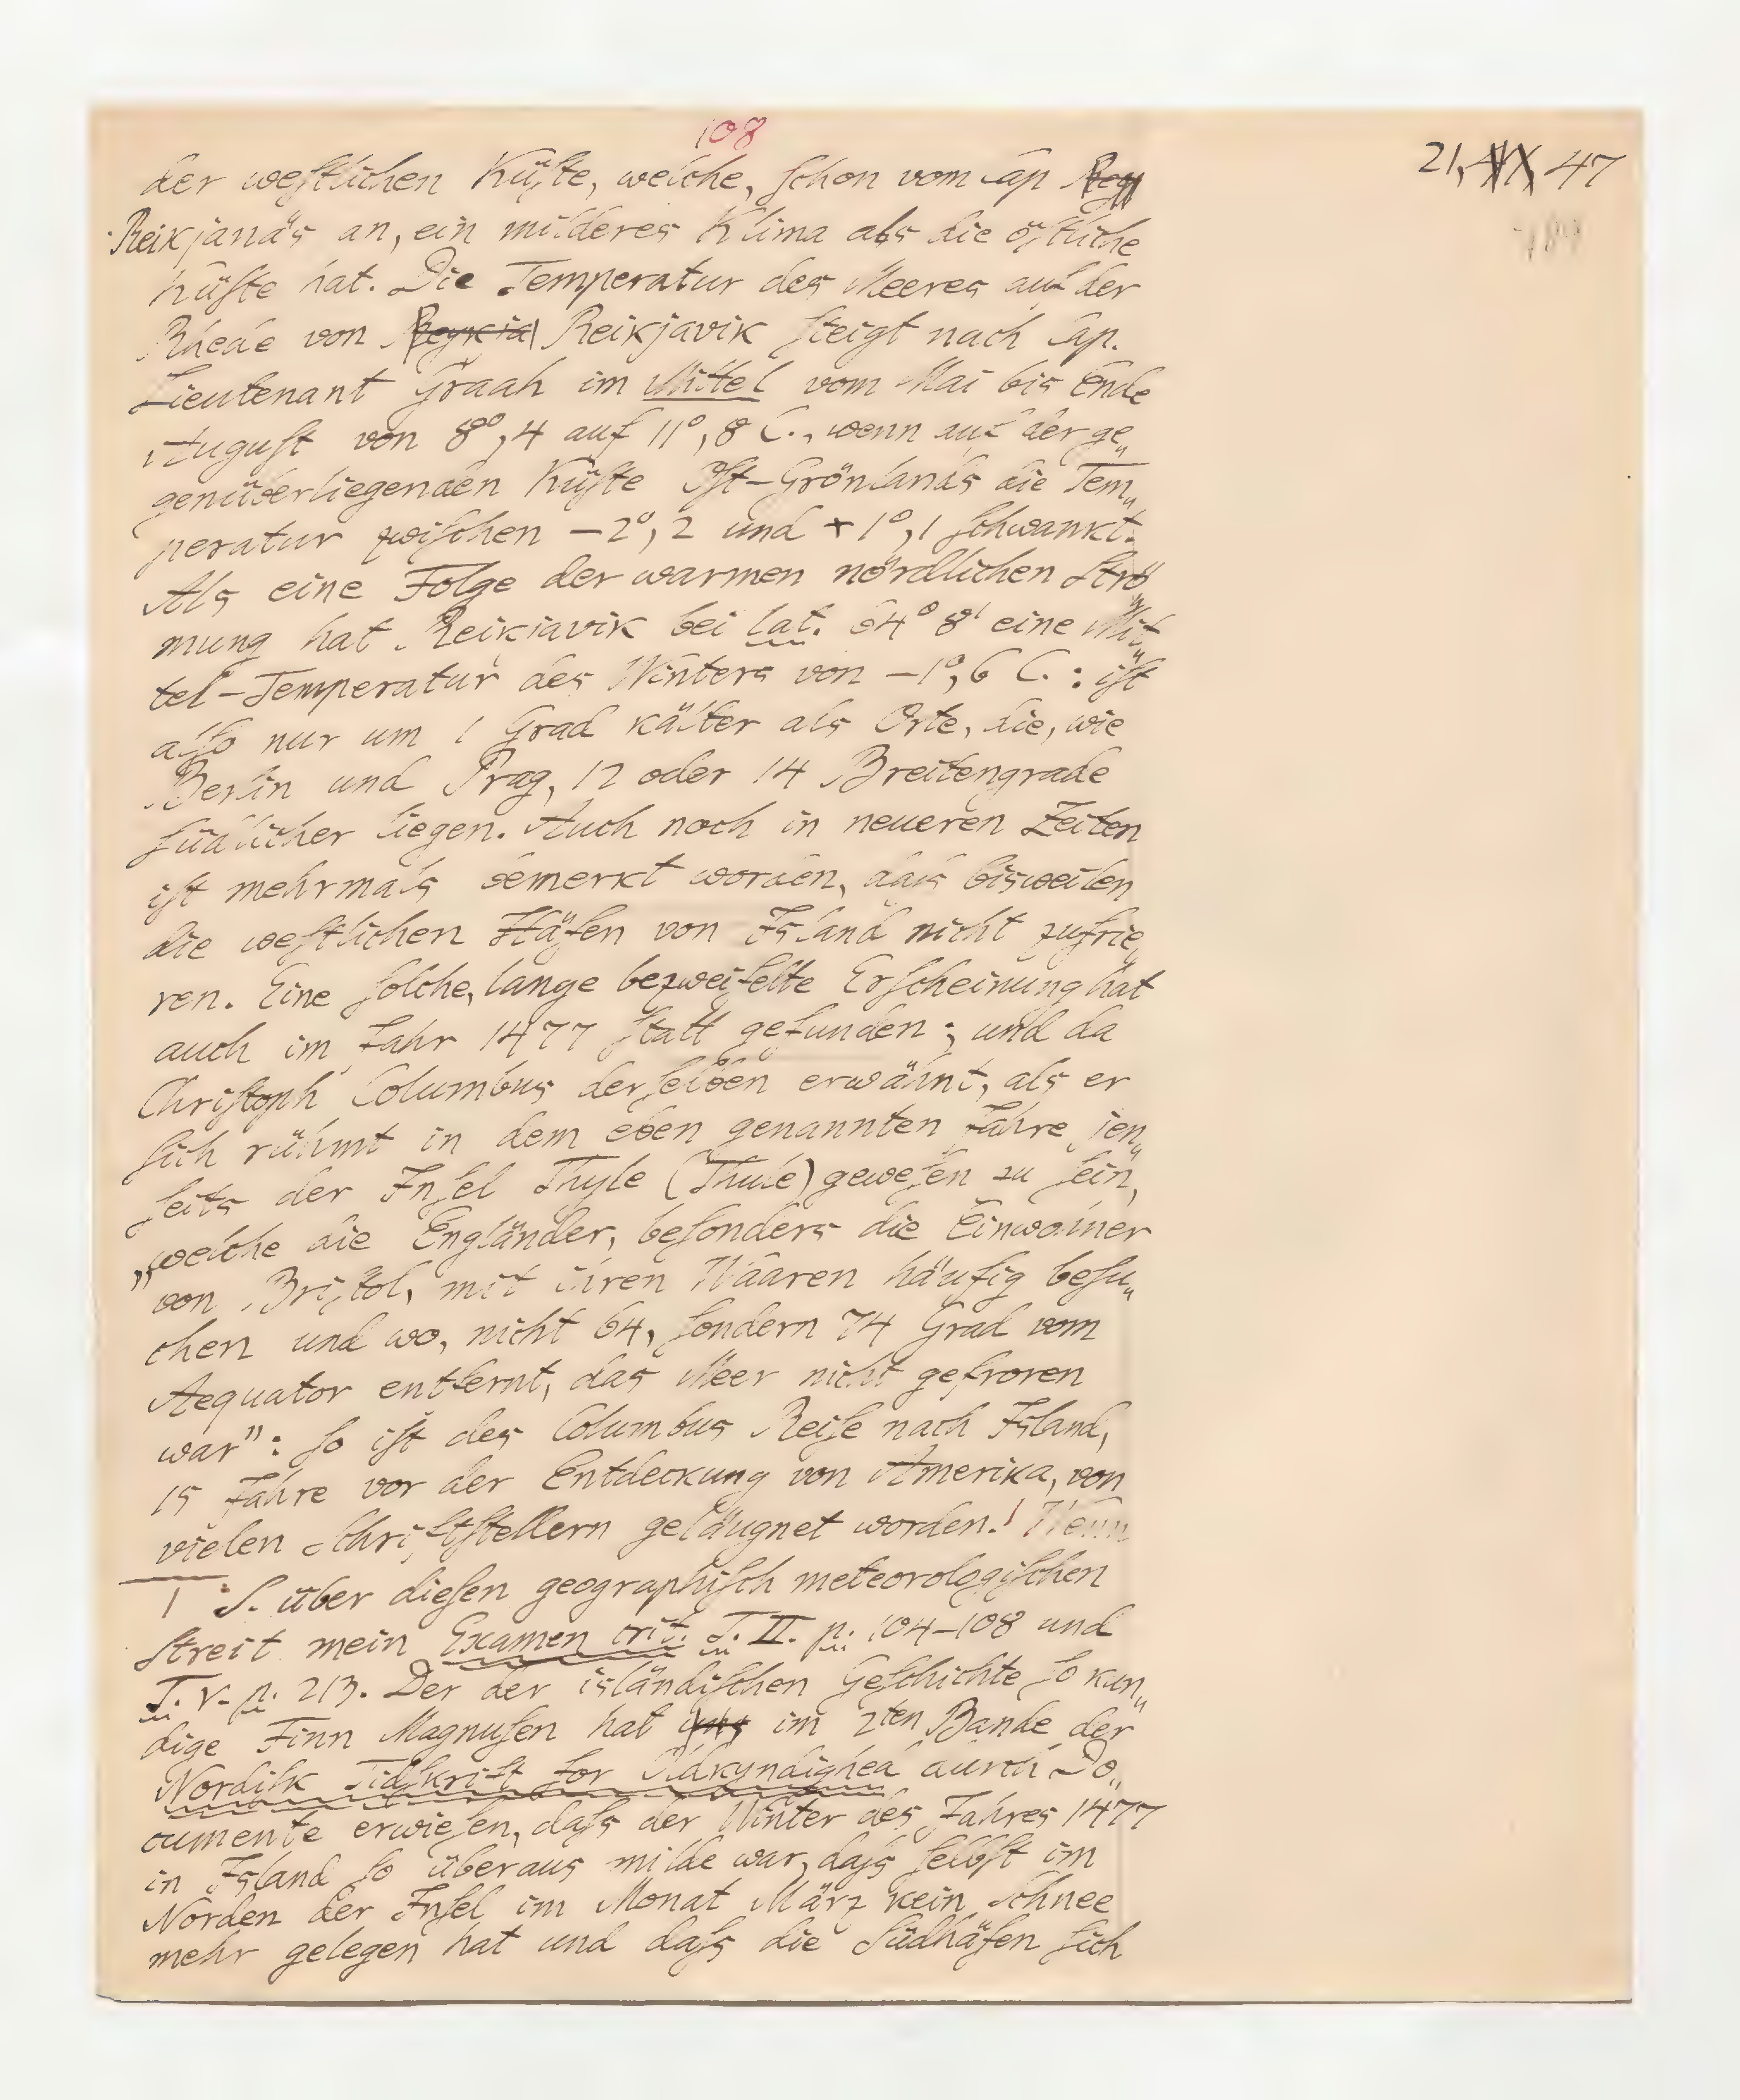 108
21, 47
der weſtlichen Küſte, welche, ſchon vom Cap Reyj
Reikjanäs an, ein milderes Klima als die öſtliche
Küſte hat. Die Temperatur des Meeres auf der
Rhede von Reykia Reikjavik ſteigt nach Cap.
Lieutenant Graah im Mittel vom Mai bis Ende
Auguſt von 8°,4 auf 11°,8 C., wenn auf der ge„
genüberliegenden Küſte Oſt-Grönlands die Tem„
peratur zwiſchen –2°,2 und +1°,1 ſchwankt.
Als eine Folge der warmen nördlichen Strö„
mung hat Reikiavik bei lat. 64° 8' eine Mit„
tel-Temperatur des Winters von –1°,6 C.: iſt
alſo nur um 1 Grad kälter als Orte, die, wie
Berlin und Prag, 12 oder 14 Breitengrade
ſüdlicher liegen. Auch noch in neueren Zeiten
iſt mehrmals bemerkt worden, daſs bisweilen
die weſtlichen Häfen von Island nicht zufrie„
ren. Eine ſolche, lange bezweifelte Erſcheinung hat
auch im Jahr 1477 ſtatt gefunden; und da
Chriſtoph Columbus derſelben erwähnt, als er
ſich rühmt in dem eben genannten Jahre jen„
ſeits der Inſel Thyle (Thule) geweſen zu ſein,
„welche die Engländer, beſonders die Einwohner
von Briſtol, mit ihren Waaren häufig beſu„
chen und wo, nicht 64, ſondern 74 Grad vom
Aequator entfernt, das Meer nicht gefroren
war": ſo iſt des Columbus Reiſe nach Island,
15 Jahre vor der Entdeckung von Amerika, von
vielen Schriftſtellern geläugnet worden.1 Wenn
1 S. über dieſen geographiſch meteorologiſchen
Streit mein Examen crit. T. II. p. 104–108 und
T. V. p. 213. Der der isländiſchen Geſchichte ſo kun„
dige Finn Magnuſen hat uns im 2ten Bande der
Nordiſk Tidſkrift for Oldkyndighed durch Do„
cumente erwieſen, daſs der Winter des Jahres 1477
in Island ſo überaus milde war, daſs ſelbſt im
Norden der Inſel im Monat März kein Schnee
mehr gelegen hat und daſs die Südhäfen ſich